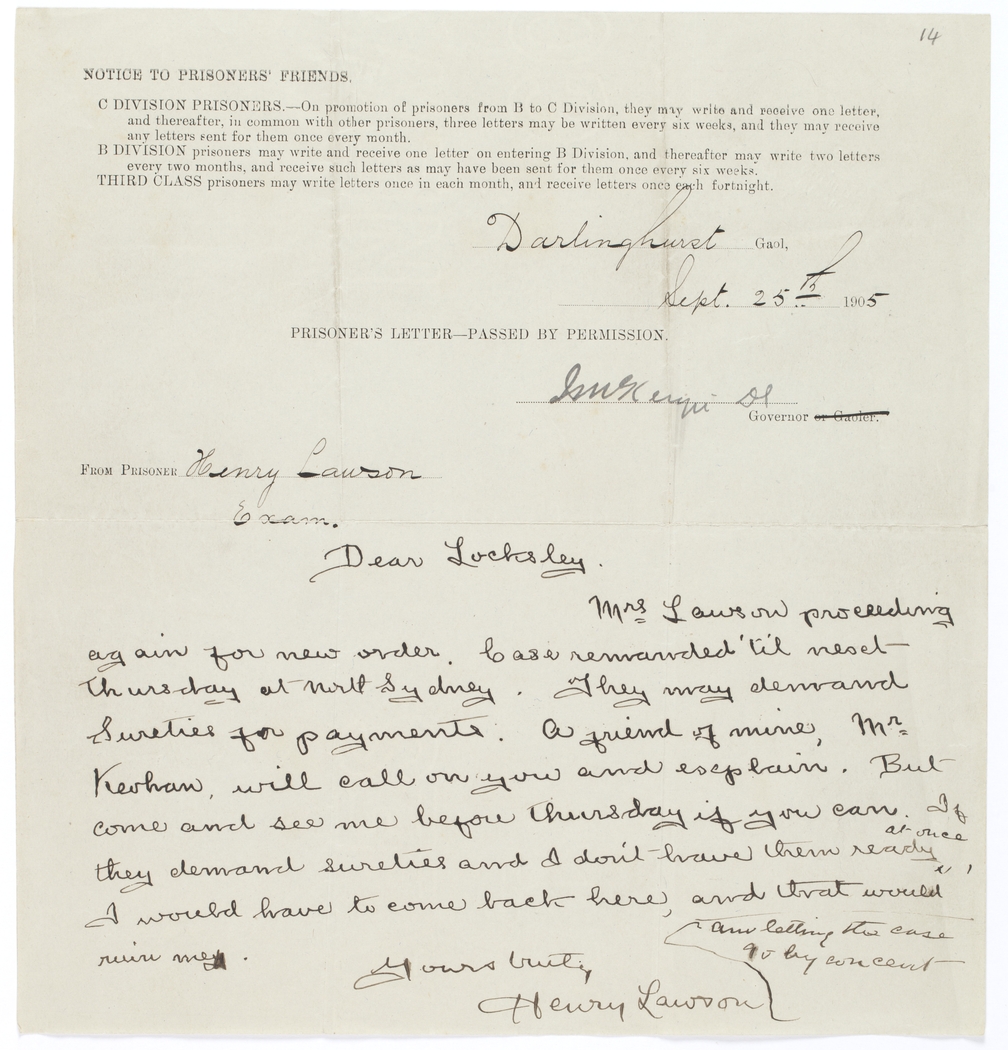 14
NOTICE TO PRISONERS' FRIENDS.
C DIVISION PRISONERS.—On promotion of prisoners from B to C Division, they may write and receive one letter,
and thereafter, in common with other prisoners, three letters may be written every six weeks, and they may receive
any letters sent for them once every month.
B DIVISION prisoners may write and receive one letter on entering B Division, and thereafter may write two letters
every two months, and receive such letters as may have been sent for them once every six weeks.
THIRD CLASS prisoners may write letters once in each month, and receive letters once each fortnight.
Darlinghurst Gaol,
Sept. 25th 1905
PRISONER'S LETTER—PASSED BY PERMISSION.
Governor or Gaoler.
FROM PRISONER Henry Lawson
Exam.
Dear Locksley.
Mrs Lawson proceeding
again for new order. Case remanded 'til next
Thursday at North Sydney. They may demand
Sureties for payments. A friend of mine, Mr
Keohan, will call on you and explain. But
come and see me before Thursday if you can. If
at once
they demand sureties and I don't have them ready,
I would have to come back here, and that would
ruin me.
I am letting the case
go by concent
Yours truly
Henry Lawson